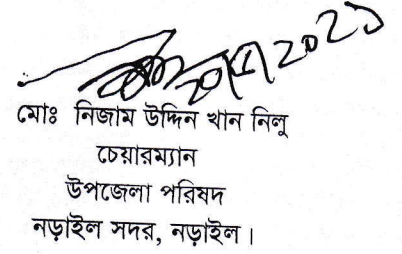 মোঃ নিজাম উদ্দিন খান নিলু
চেয়ারম্যান
উপজেলা পরিষদ
নড়াইল সদর, নড়াইল।